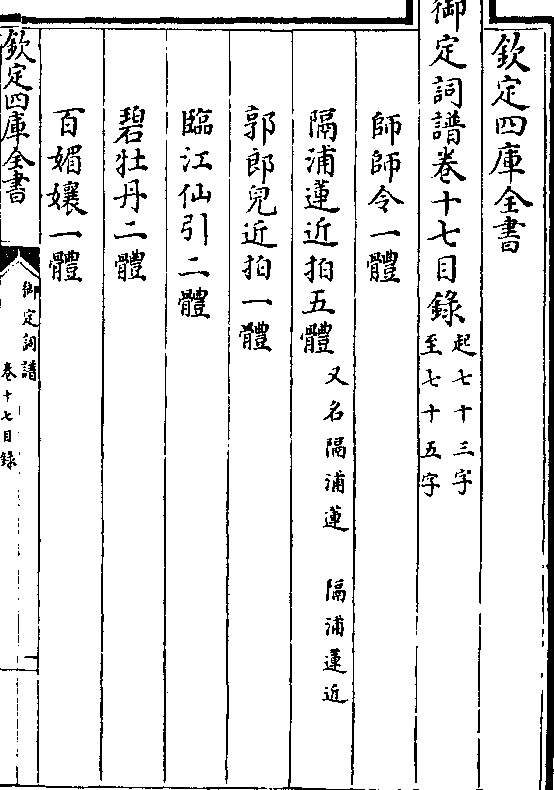 欽定四庫全書
御定詞譜卷十七目錄
起七十三字
至七十五字
師師令一體
隔浦蓮近拍五體
又名隔浦蓮 隔浦蓮近
郭郎兒近拍一體
臨江仙引二體
碧牡丹二體
百媚孃一體
欽定四庫全書
御定詞譜
卷十七目錄
一